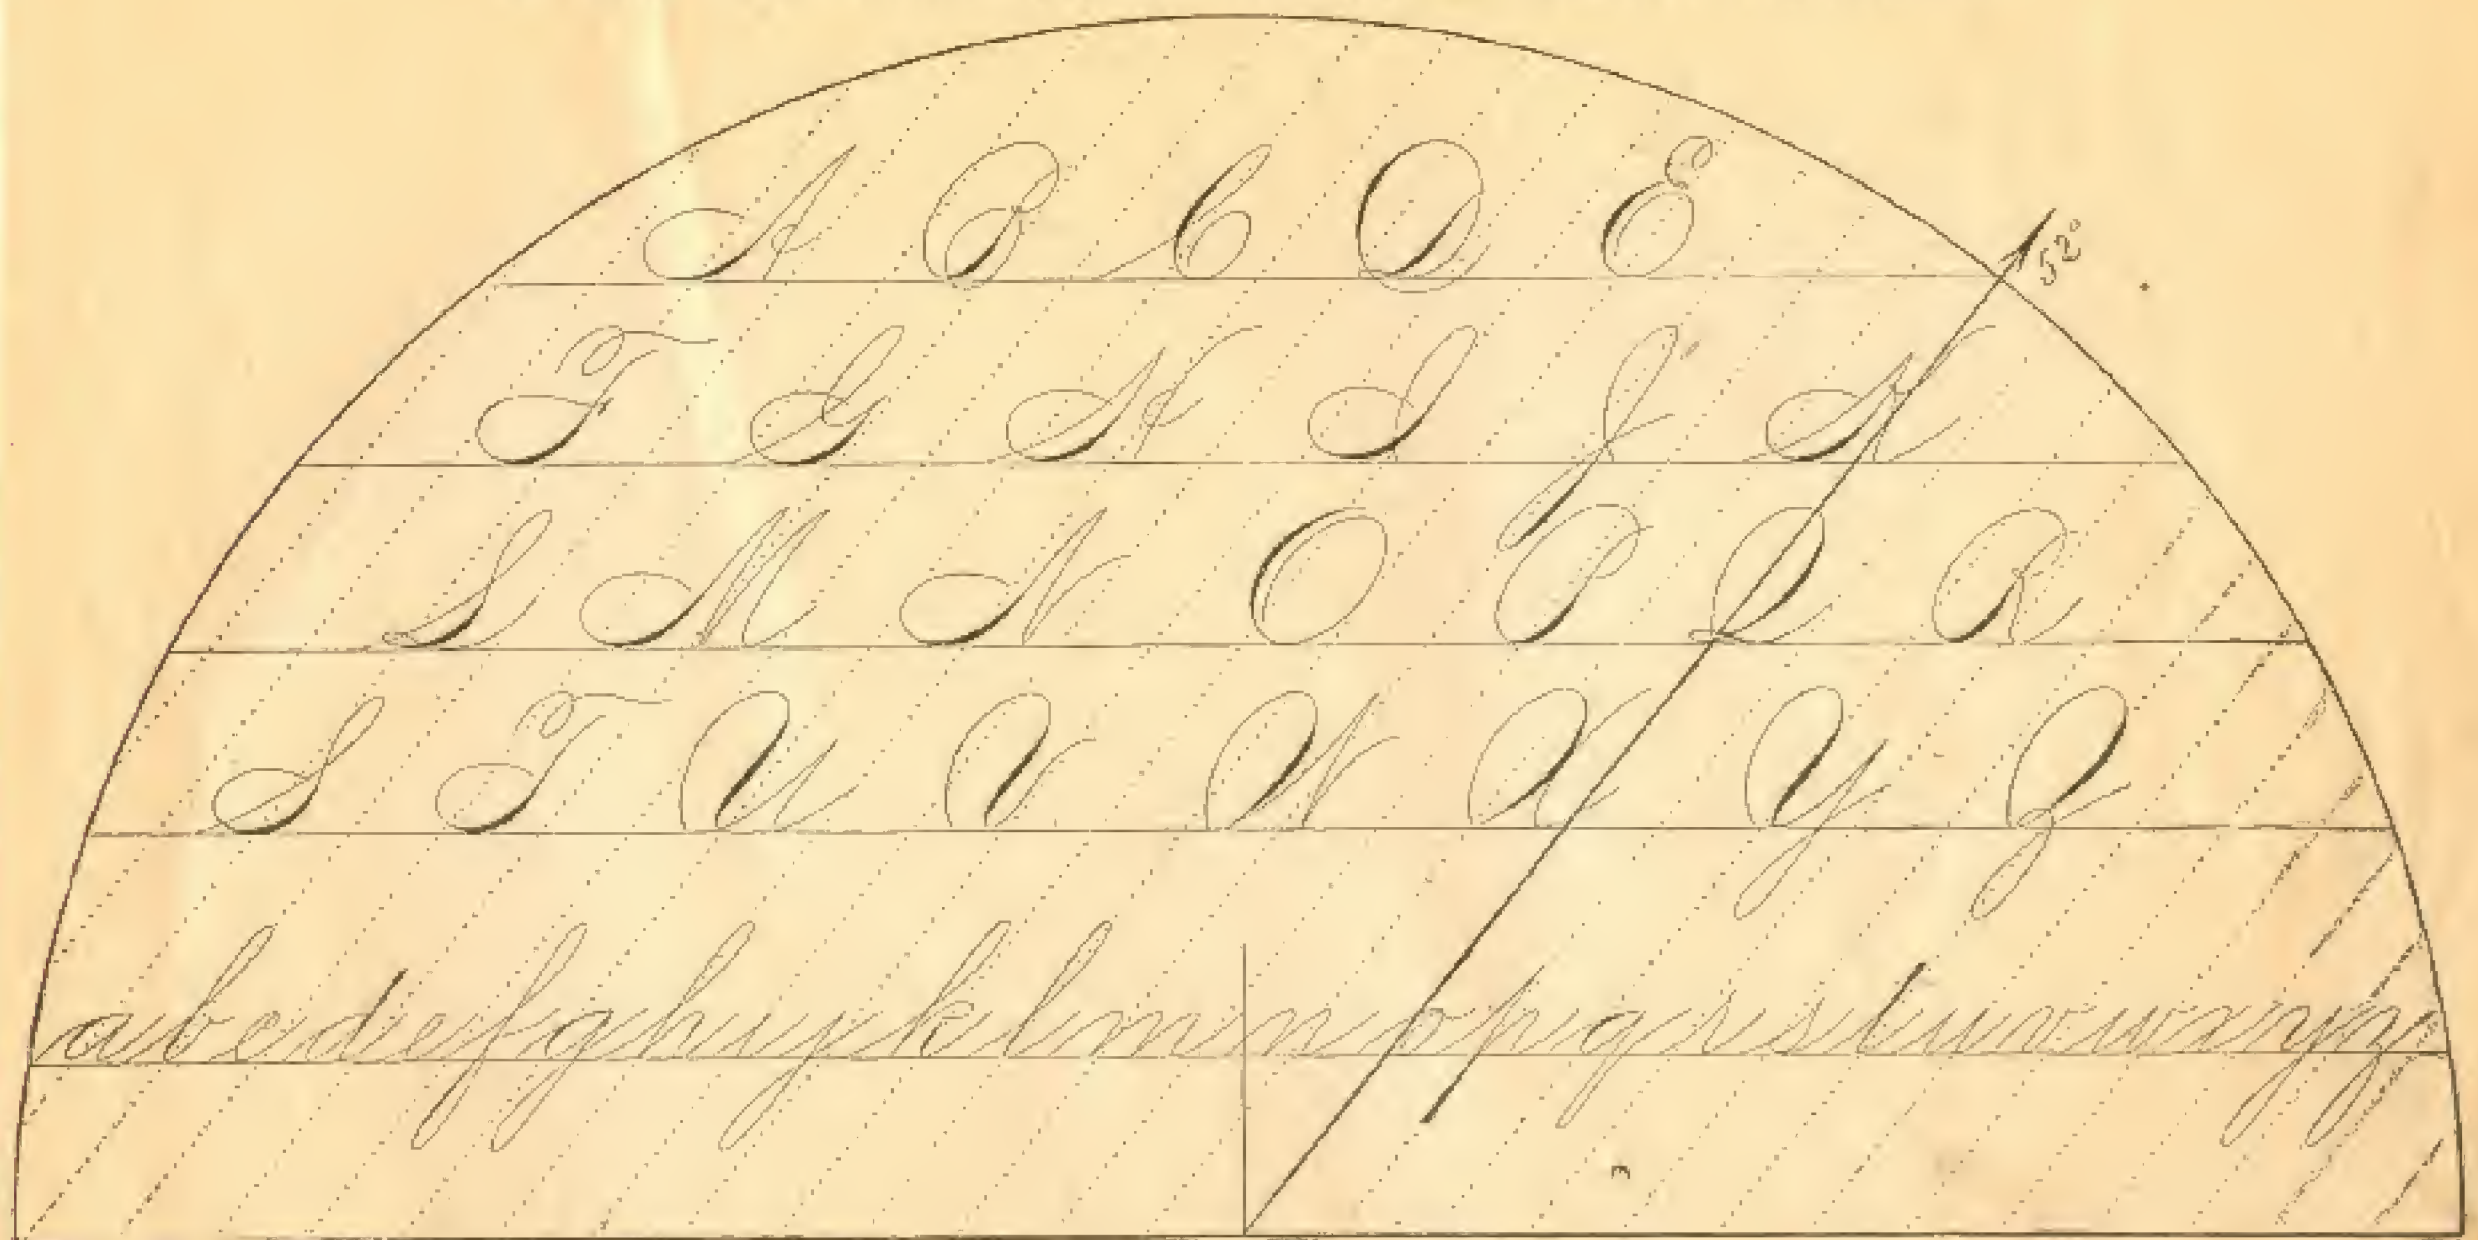 A B C D E
52°
F G H I J K
L M N O P Q R
S T U V W X Y Z
abcdefghijklmnopqrstuvwxyz